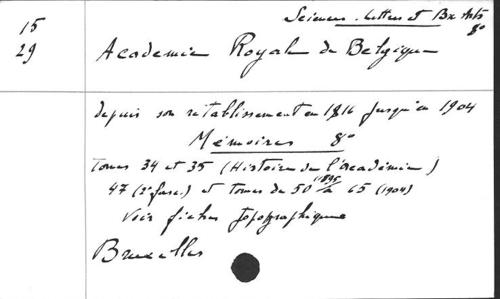 15
29
Sciences. Lettres et Bx Arts
8°
Academie Royale de Belgique
depuis son retablissement en 1816 jusqu'en 1904
Mémoires 8°
tomes 34 et 35 (Histoire de l'académie)
47 (2e fasc.) et tomes de 50 1895 à 65 (1904)
Voir fiches topographiques
Bruxelles